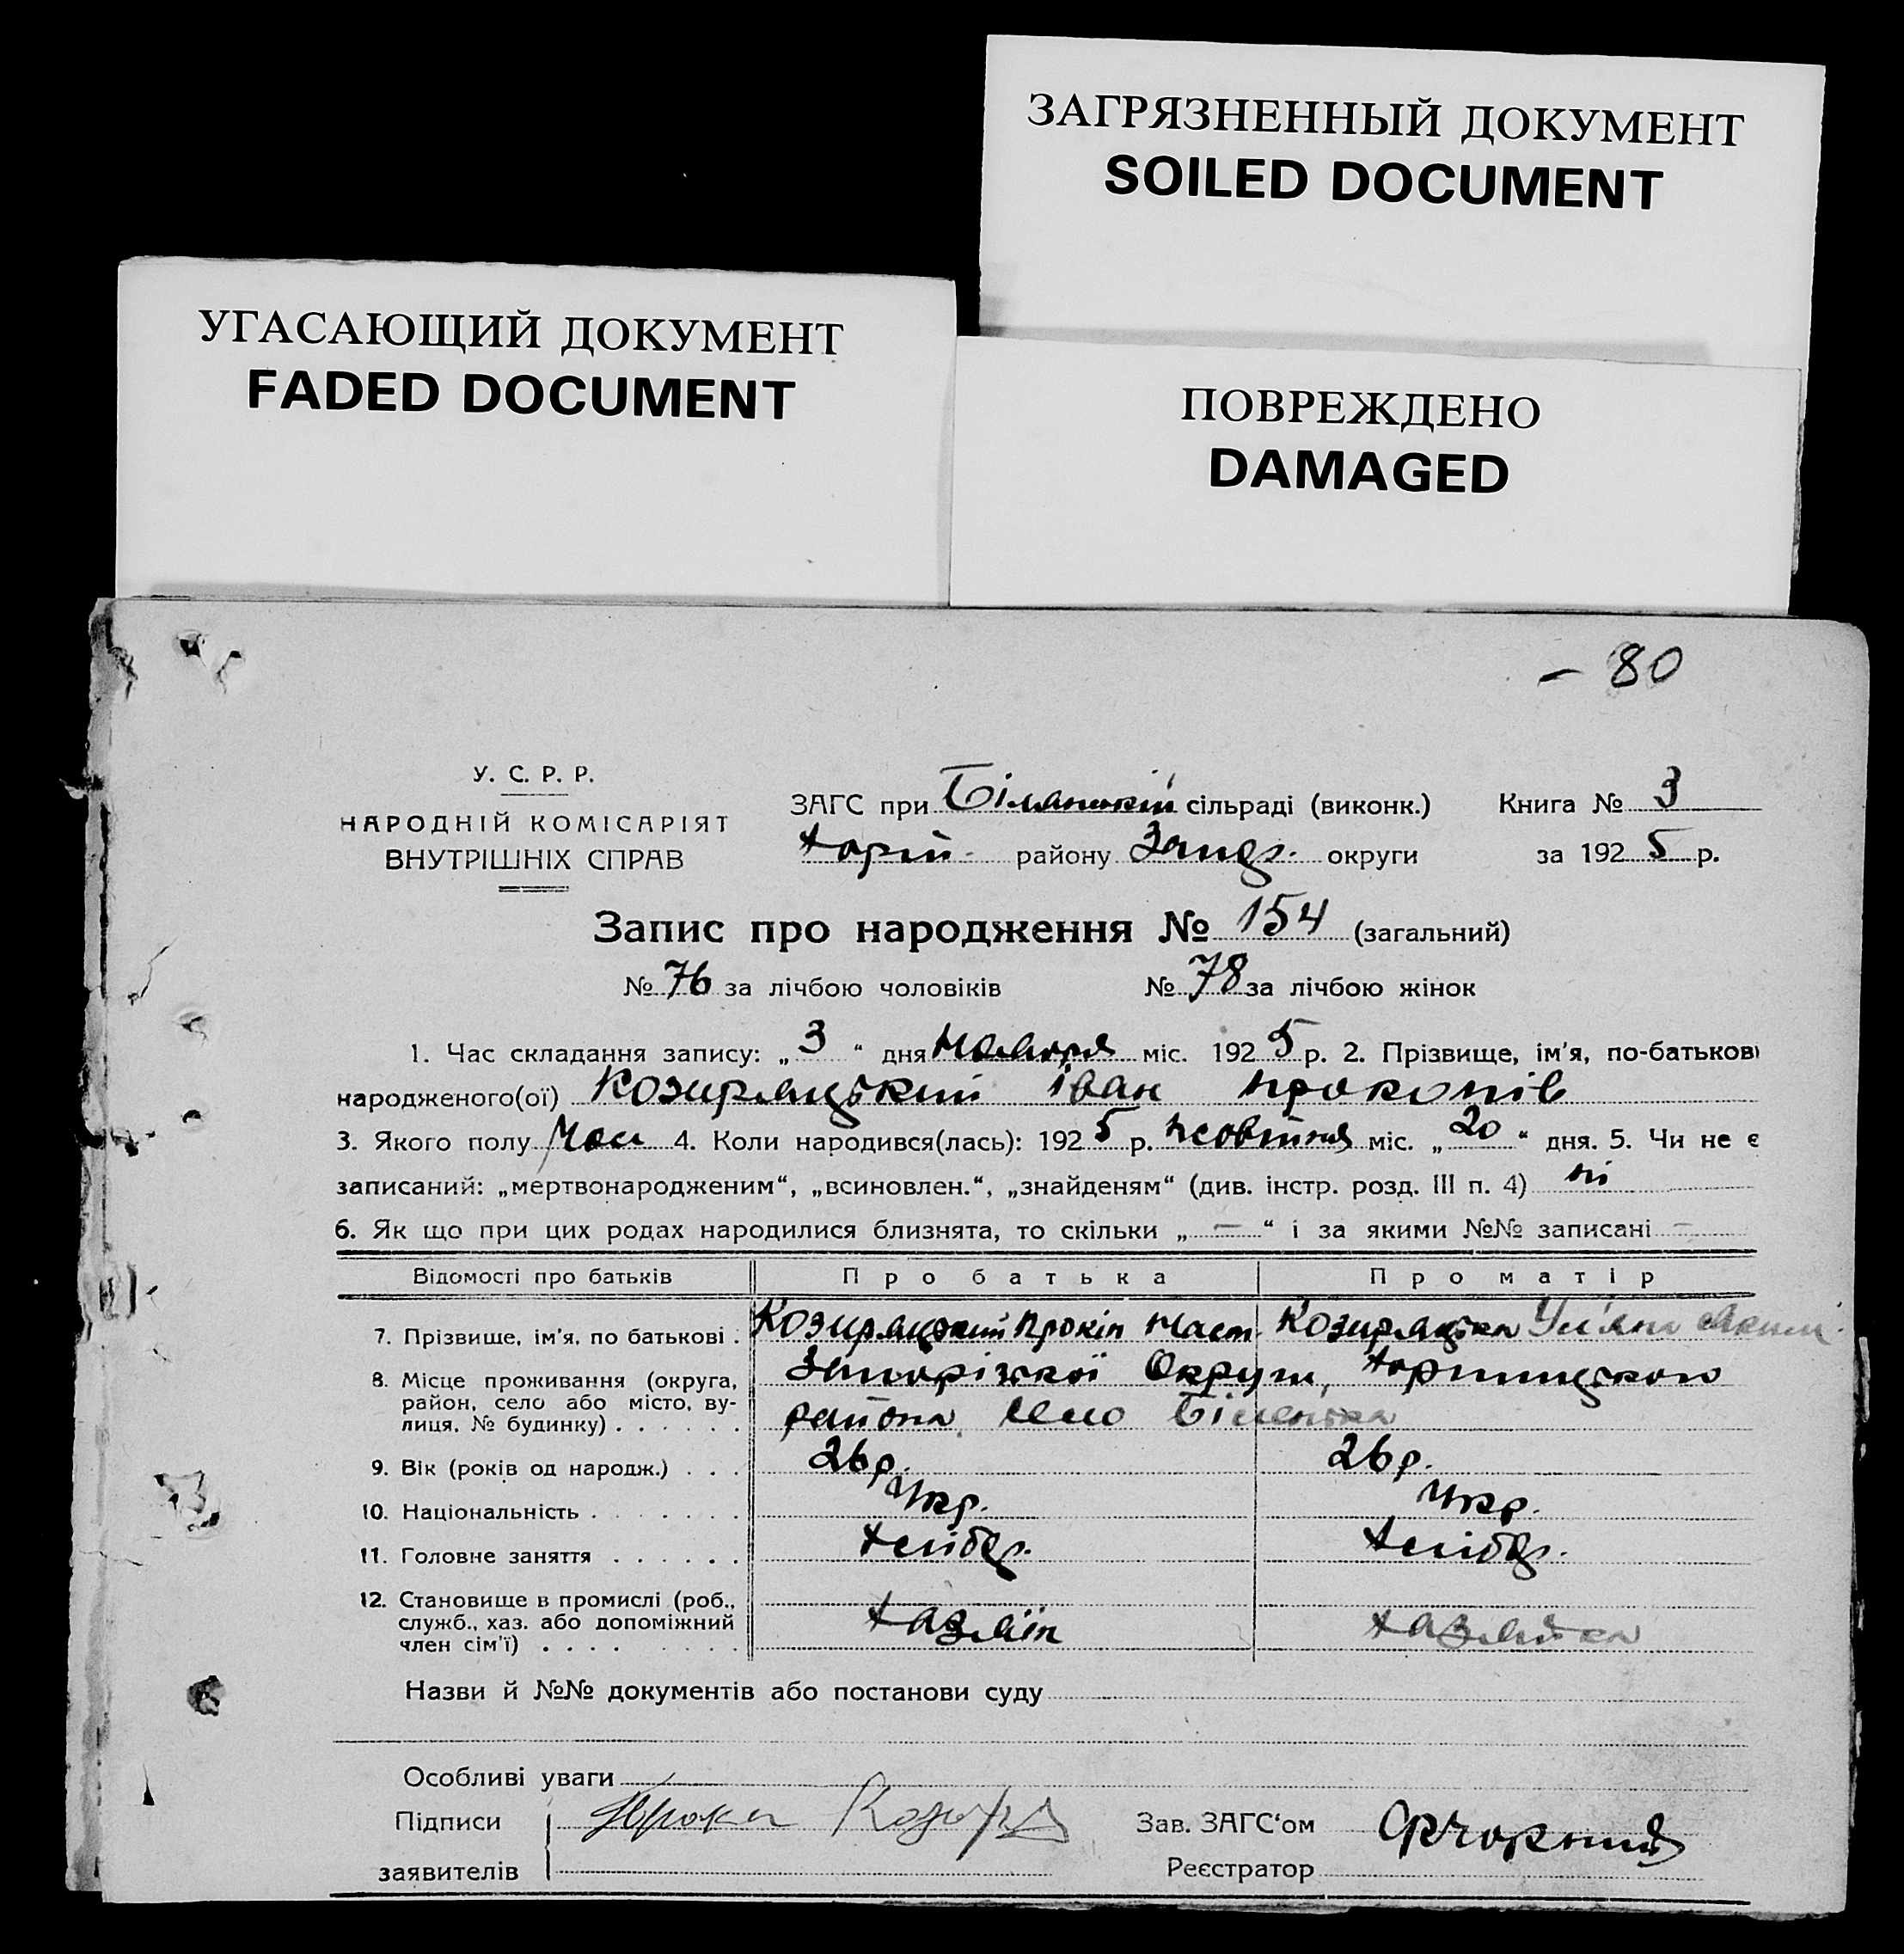 ЗАГРЯЗНЕННЫЙ ДОКУМЕНТ
SOILED DOCUMENT
УГАСАЮЩИЙ ДОКУМЕНТ
FADED DOCUMENT
ПОВРЕЖДЕНО
DAMAGED
– 80
У. С. Р. Р.
НАРОДНІЙ КОМІСАРІЯТ
ВНУТРІШНІХ СПРАВ
ЗАГС при Біленькій сільраді (виконк.) Книга № 3
Хорт. району Запор. округи за 1925 р.
Запис про народження № 154 (загальний)
№ 76 за лічбою чоловіків № 78 за лічбою жінок
1. Час складання запису: „3“ дня міс. 1925 р. 2. Прізвище, ім'я, по-батькові
народженого(ої) Козиряцький Іван Прокопів
3. Якого полу Чол 4. Коли народився(лась): 1925 р. жовтня міс. „20“ дня. 5. Чи не є
записаний: „мертвонародженим“, „всиновлен.“, „знайденям“ (див. інстр. розд. III п. 4) ні
6. Як що при цих родах народилися близнята, то скільки „—“ і за якими №№ записані —
Відомості про батьків Про батька Про матір
7. Прізвище, ім'я, по батькові . Козиряцький Прокіп Козиряцька Уляна
8. Місце проживання (округа, район, село або місто, вулиця, № будинку) . . . . . . Запорізької Округи, Хортицького
района, село Біленька
9. Вік (років од народж.) . . . 26 р. 26 р.
10. Національність . . . . . . . Укр. Укр.
11. Головне заняття . . . . . . Хлібор. Хлібор.
12. Становище в промислі (роб., служб., хаз. або допоміжний член сім'ї) . . . . Хазяїн Хазяйка
Назви й №№ документів або постанови суду
Особливі уваги
Підписи
заявителів
Зав. ЗАГС'ом
Реєстратор